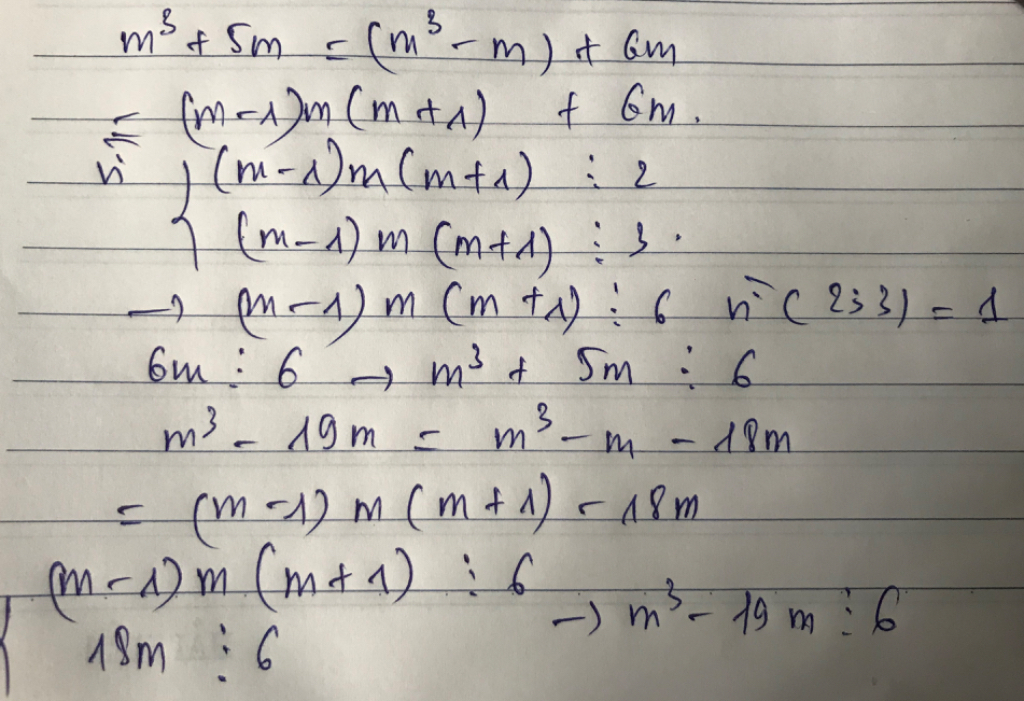 m³ + 5m = (m³ - m) + 6m
= (m-1)m(m+1) + 6m.
vì { (m-1)m(m+1) ⋮ 2
(m-1)m(m+1) ⋮ 3.
→ (m-1)m(m+1) ⋮ 6 vì (2;3) = 1
6m ⋮ 6 → m³ + 5m ⋮ 6
m³ - 19m = m³ - m - 18m
= (m-1)m(m+1) - 18m
{ (m-1)m(m+1) ⋮ 6
18m ⋮ 6 → m³ - 19m ⋮ 6